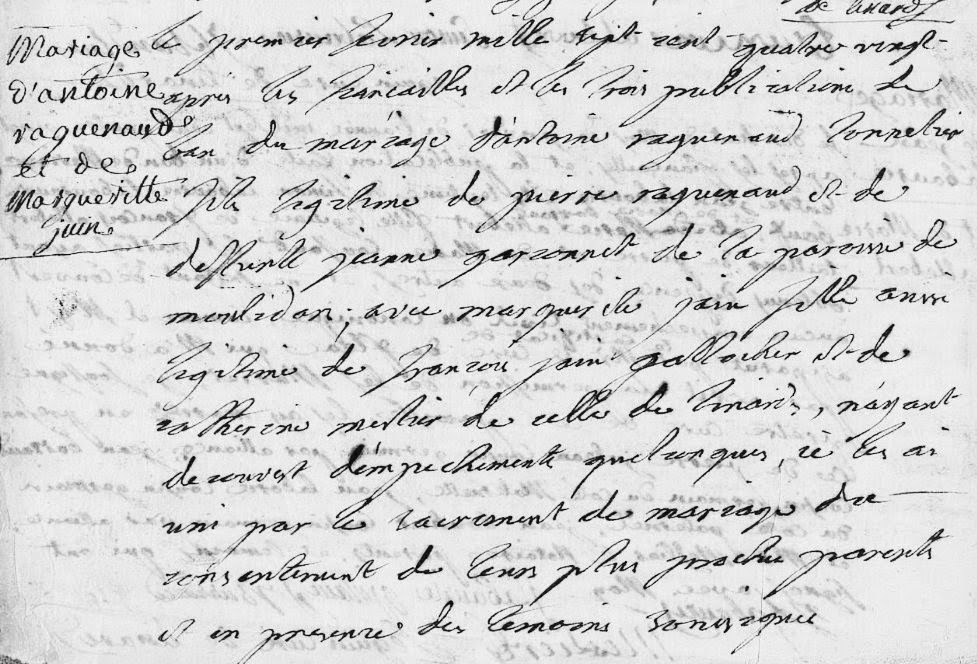 de linards
Mariage
d'antoine
raguenaud
et de
Margueritte
juin
le premier fevrier mille sept cent quatre vingt
apres les fiancailles et les trois publications de
ban du mariage d'antoine raguenaud tonnelier
fils légitime de pierre raguenaud et de
deffunte jeanne garsonnet de la paroisse de
moulidars, avec marguerite juin fille aussi
légitime de francois juin et de
catherine mestier de celle de linards, n'ayant
decouvert d'empechements quelconques, je les ai
uni par le sacrement de mariage du
consentement de leurs plus proches parents
et en presence des temoins soussignes